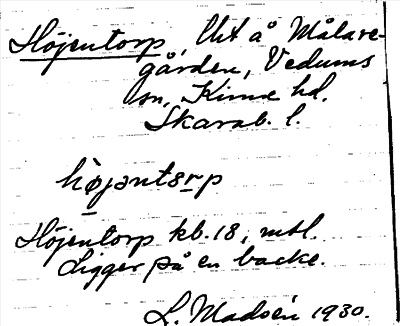 Höjentorp, Ust å Målare-
gården, Vedums
sn, Kinne hd.
Skarab. l.
höjantsrp
Höjentorp kb. 18, mtl.
Ligger på en backe.
L. Madsén 1930.